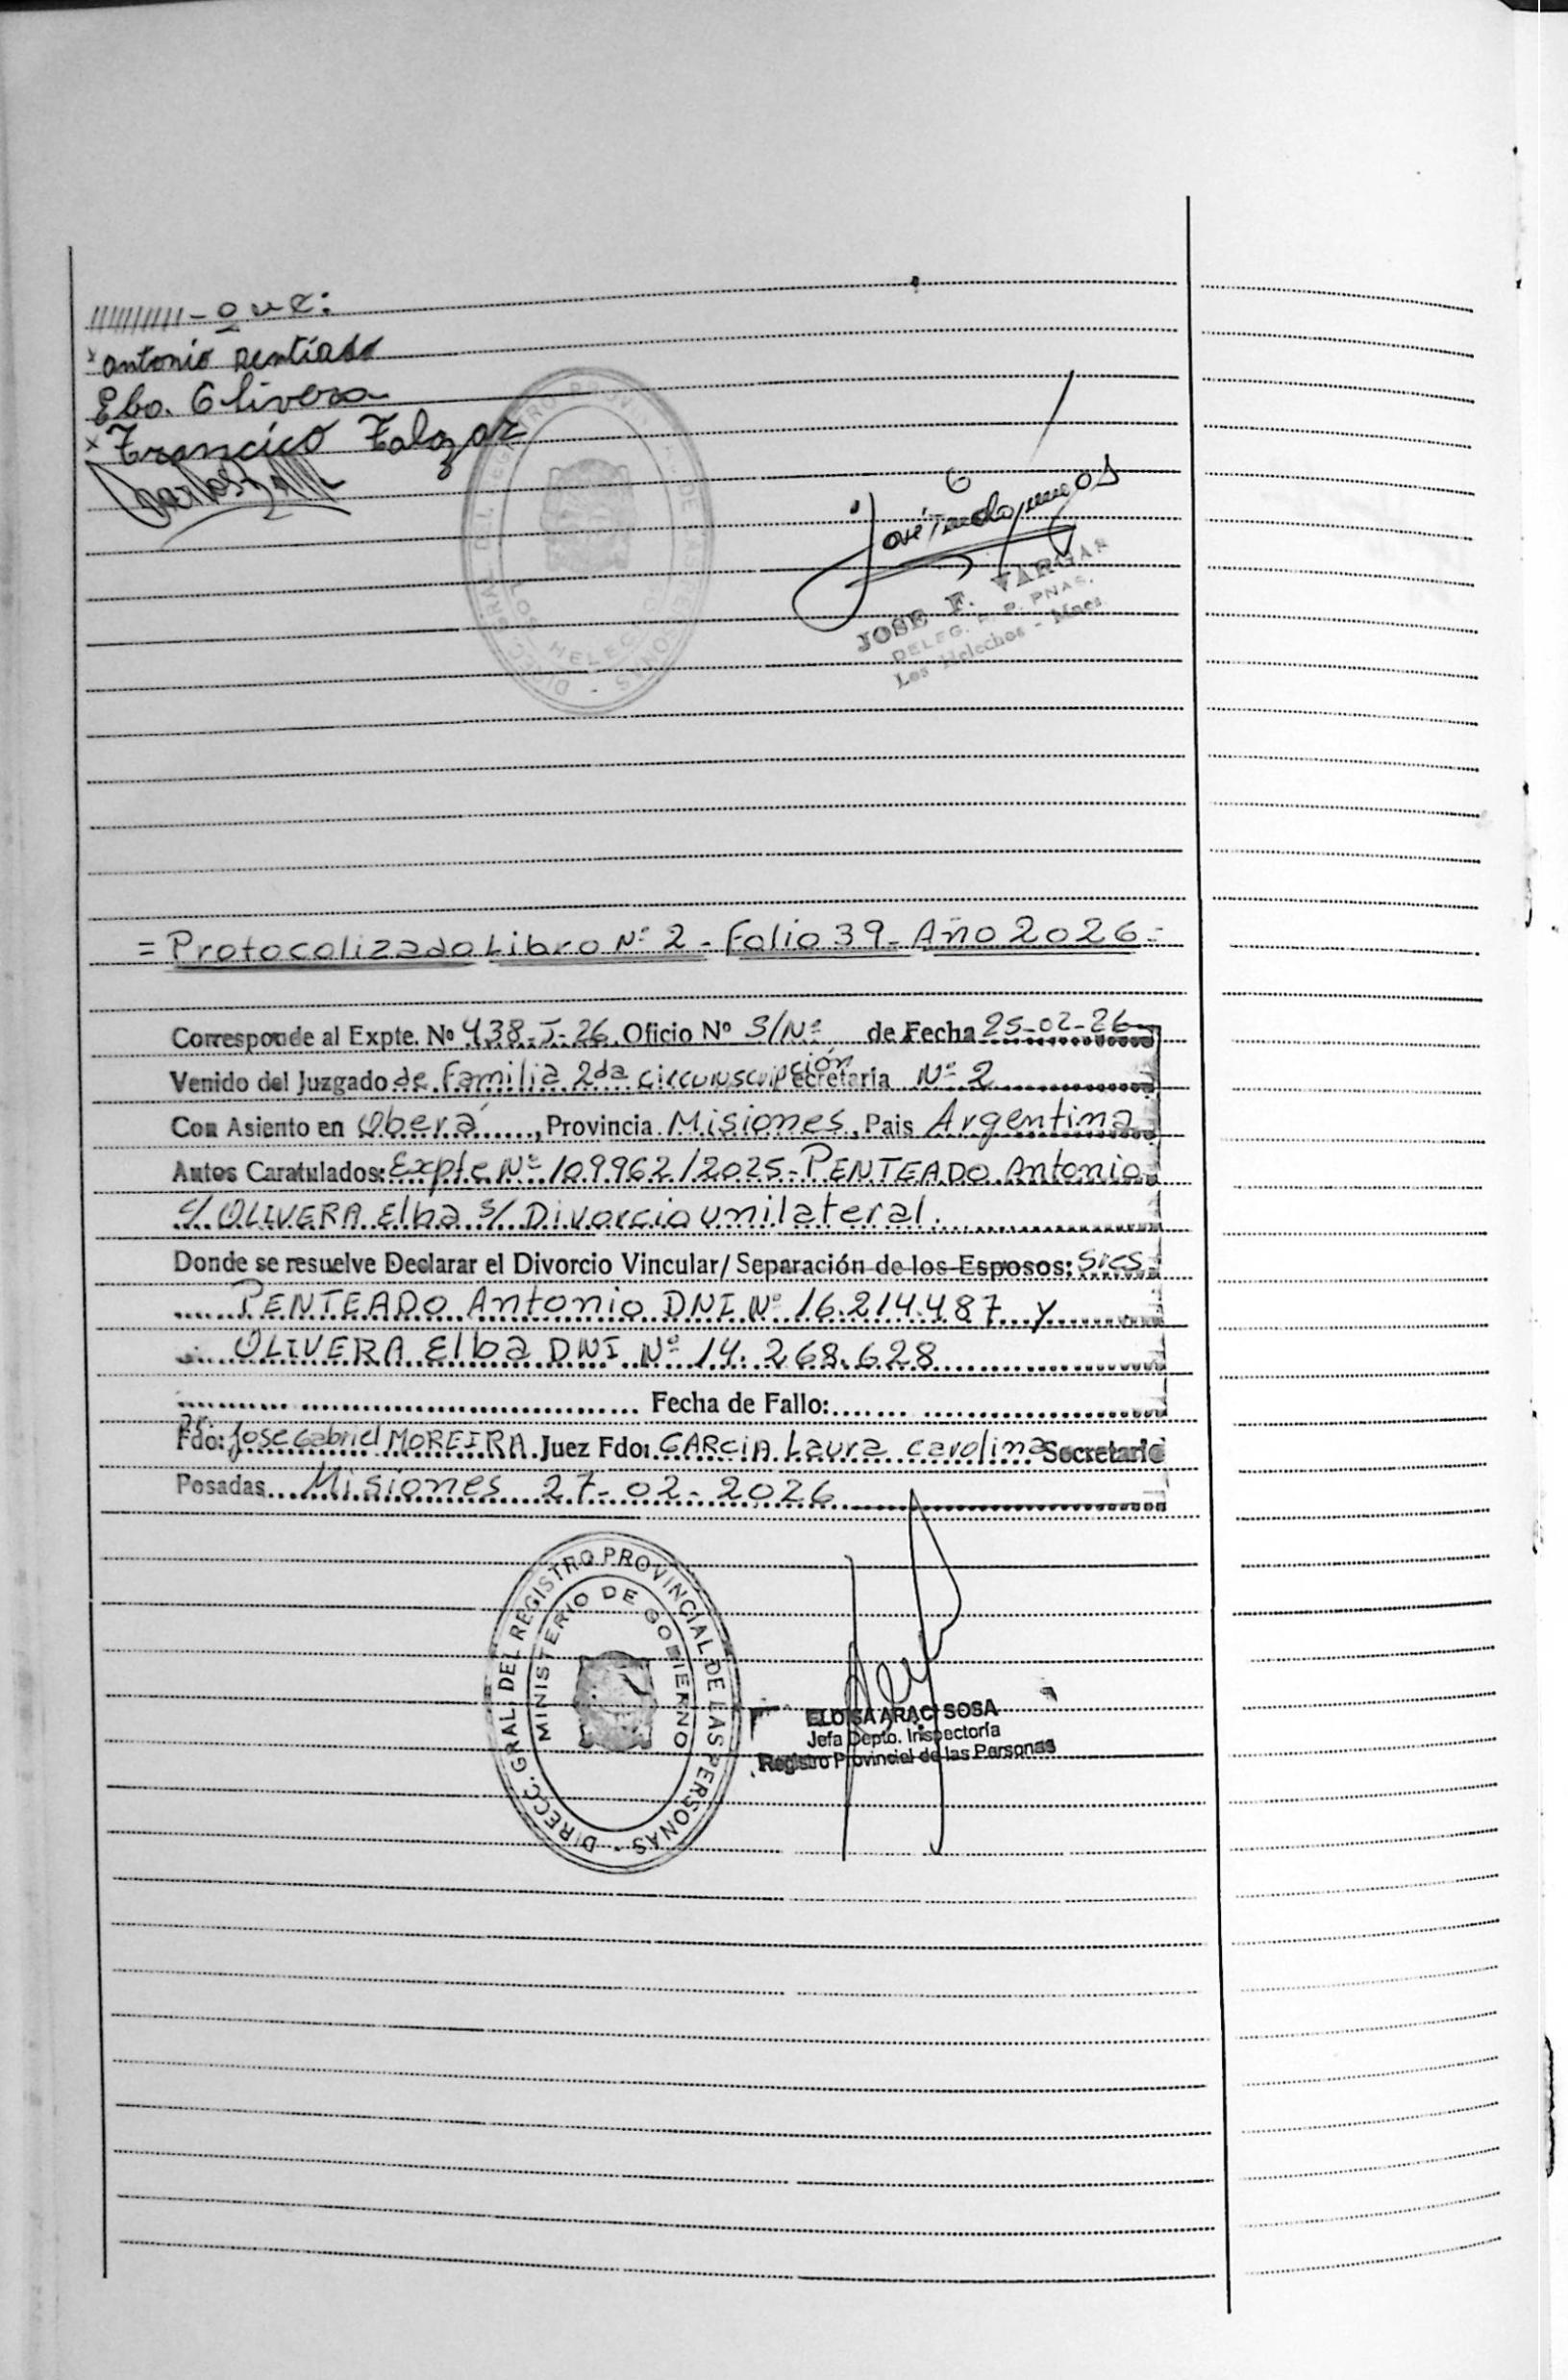 ////////// - que:
x antonio Pentiado
Elba. Olivera
x Francico Talazar
JOSE F. VARGAS
DELEG. R. P. PNAS.
Los Helechos - Mnes
DIRECC. GRAL. DEL REGISTRO PROVINCIAL DE LAS PERSONAS -
LOS HELECHOS
= Protocolizado Libro Nº 2 - Folio 39 - Año 2026 =
Corresponde al Expte. Nº 438-J-26 Oficio Nº S/Nº de Fecha 25-02-26
Venido del Juzgado de Familia 2da circunscripción ecretaria Nº 2
Con Asiento en Oberá, Provincia Misiones, Pais Argentina
Autos Caratulados: Expte Nº 109962/2025 - PENTEADO Antonio
c/ OLIVERA Elba s/ Divorcio unilateral.
Donde se resuelve Declarar el Divorcio Vincular/ Separación de los Esposos: Sres
PENTEADO Antonio DNI Nº 16.214.487 y
OLIVERA Elba DNI Nº 14.268.628
Fecha de Fallo:
Fdo: Dr. Jose Gabriel MOREIRA Juez Fdo: GARCIA Laura Carolina Secretario
Posadas Misiones 27-02-2026
DIRECC. GRAL. DEL REGISTRO PROVINCIAL DE LAS PERSONAS -
MINISTERIO DE GOBIERNO
ELOISA ARACI SOSA
Jefa Depto. Inspectoría
Registro Provincial de las Personas